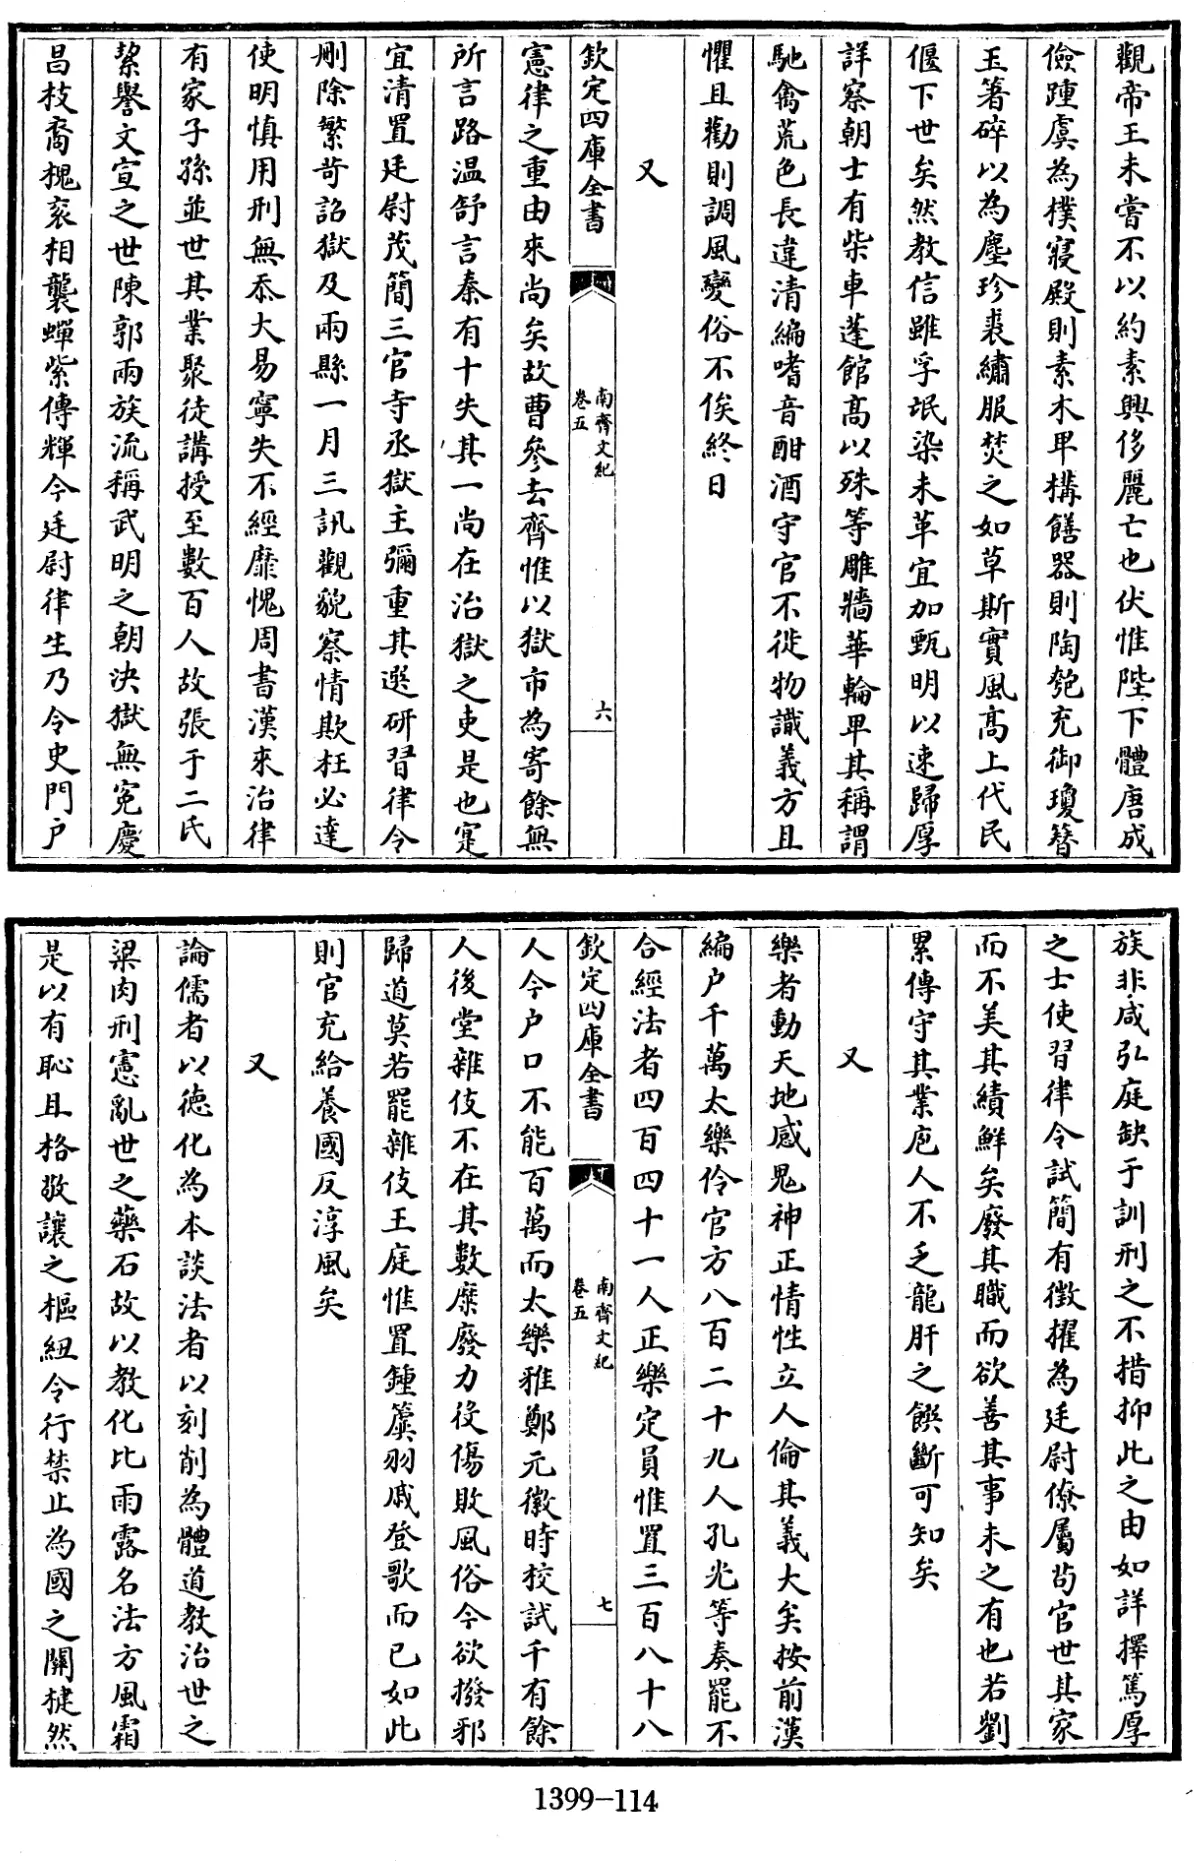 觀帝王未嘗不以約素興侈麗亡也伏惟陛下體唐成
儉踵虞為樸寢殿則素木卑構饍器則陶匏充御瓊簪
玉箸碎以為塵珍裘繡服焚之如草斯實風高上代民
偃下世矣然教信雖孚氓染未革宜加甄明以速歸厚
詳察朝士有柴車蓬館高以殊等雕牆華輪卑其稱謂
馳禽荒色長違清編嗜音酣酒守官不徙物識義方且
懼且勸則調風變俗不俟終日
又
欽定四庫全書
南齊文紀
卷五
六
憲律之重由來尚矣故曹參去齊惟以獄市為寄餘無
所言路温舒言秦有十失其一尚在治獄之吏是也寔
宜清置廷尉茂簡三官寺丞獄主彌重其選研習律令
刪除繁苛詔獄及兩縣一月三訊觀貌察情欺枉必達
使明慎用刑無忝大易寧失不經靡愧周書漢來治律
有家子孫並世其業聚徒講授至數百人故張于二氏
絜譽文宣之世陳郭兩族流稱武明之朝決獄無冤慶
昌枝裔槐衮相襲蟬紫傳輝今廷尉律生乃令史門户
族非咸弘庭缺于訓刑之不措抑此之由如詳擇篤厚
之士使習律令試簡有徵擢為廷尉僚屬苟官世其家
而不美其績鮮矣廢其職而欲善其事未之有也若劉
累傳守其業庖人不乏龍肝之饌斷可知矣
又
樂者動天地感鬼神正情性立人倫其義大矣按前漢
編户千萬太樂伶官方八百二十九人孔光等奏罷不
合經法者四百四十一人正樂定員惟置三百八十八
欽定四庫全書
南齊文紀
卷五
七
人今户口不能百萬而太樂雅鄭元徽時校試千有餘
人後堂雜伎不在其數糜廢力役傷敗風俗今欲撥邪
歸道莫若罷雜伎王庭惟置鍾簴羽戚登歌而已如此
則官充給養國反淳風矣
又
論儒者以德化為本談法者以刻削為體道教治世之
粱肉刑憲亂世之藥石故以教化比雨露名法方風霜
是以有恥且格敬讓之樞紐令行禁止為國之關楗然
1399-114